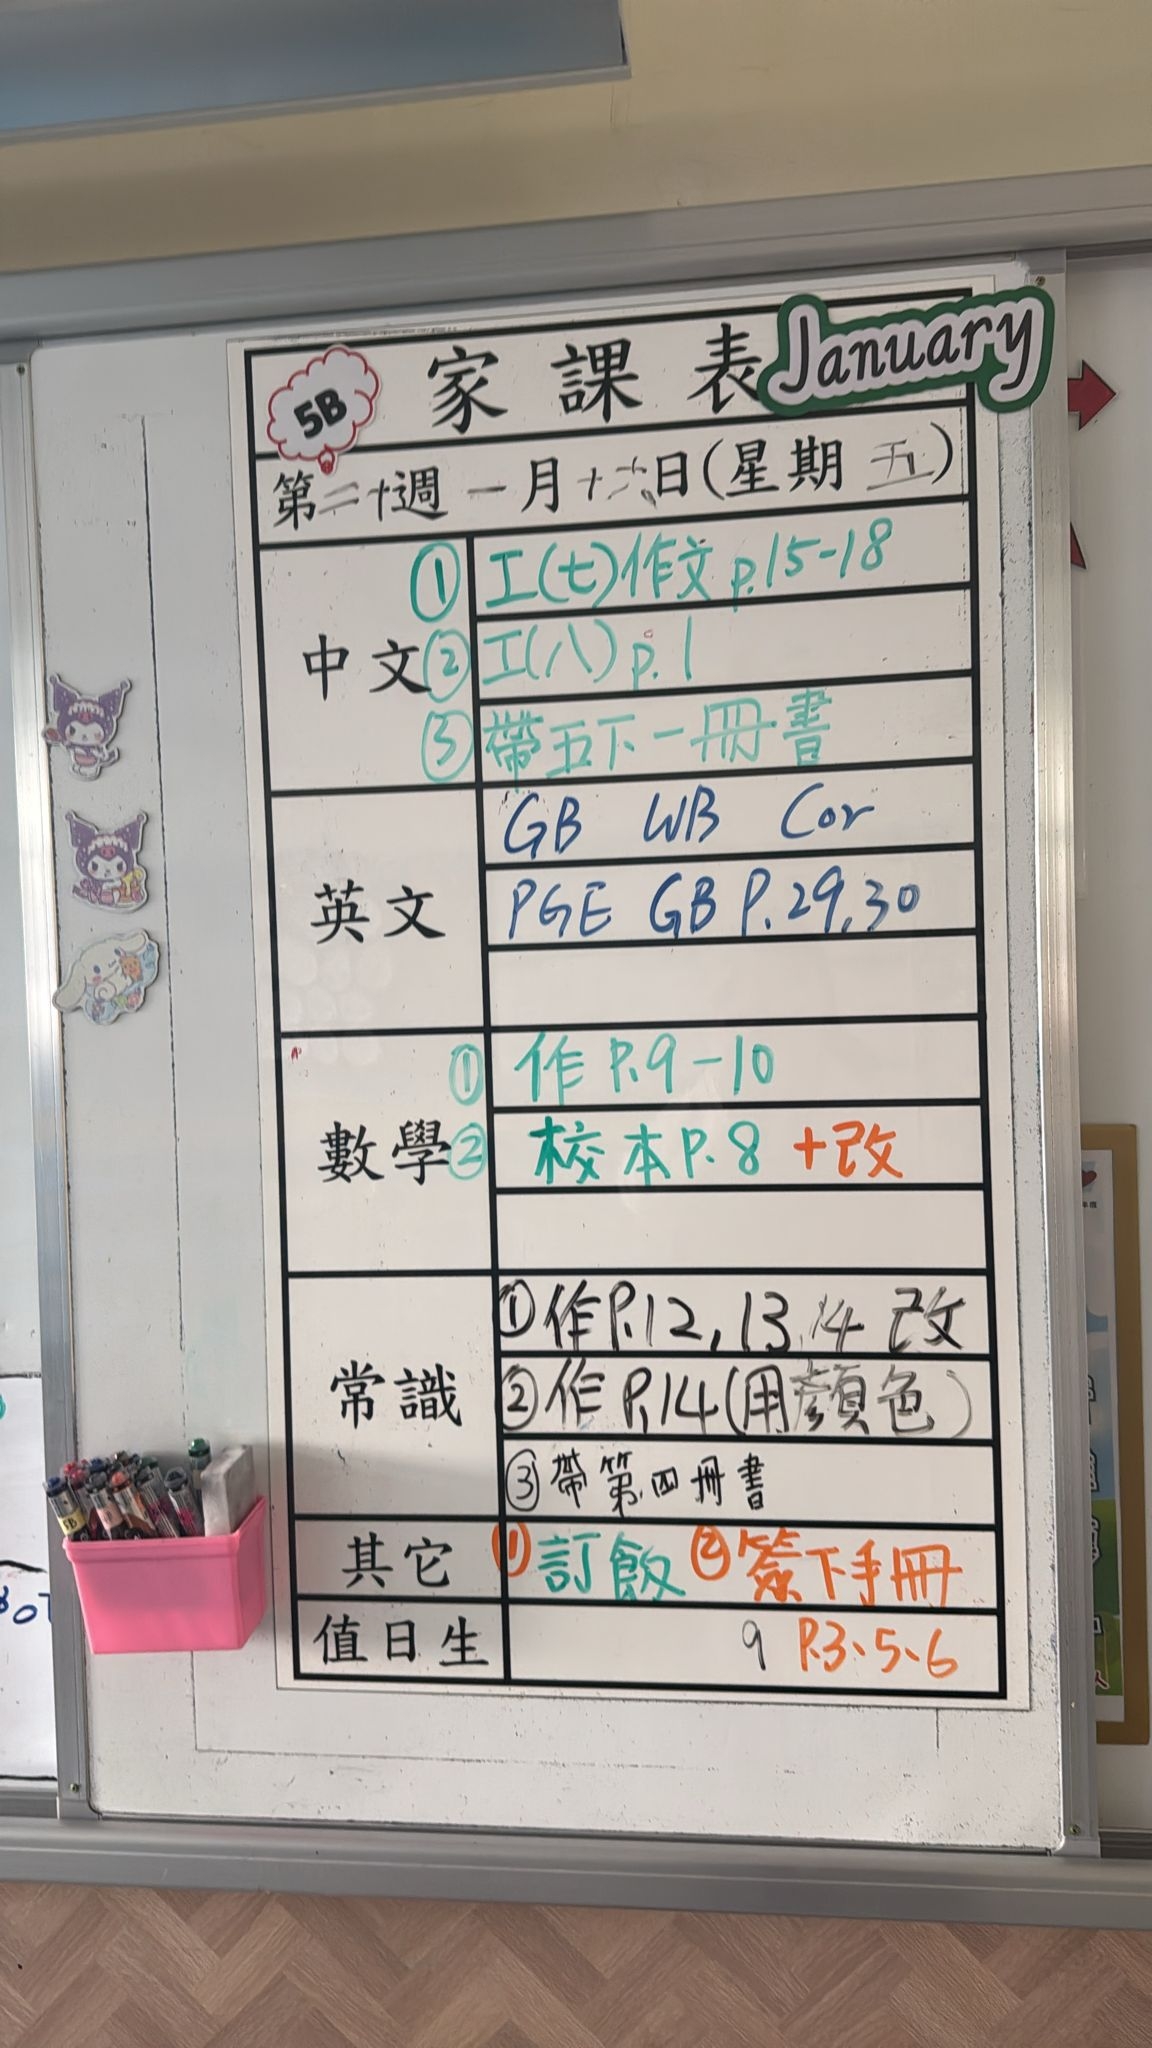 5B 家課表 January
第二十週 一月十六日(星期五)
中文
① 工(七)作文 p.15-18
② 工(八) p.1
③ 帶五下一冊書
英文
GB WB Cor
PGE GB P.29,30
數學
① 作 P.9-10
② 校本P.8 +改
常識
①作P.12,13,14 改
②作P.14(用顏色)
③帶第四冊書
其它 ①訂飯 ②簽下手冊
值日生 9 P.3、5、6
5B